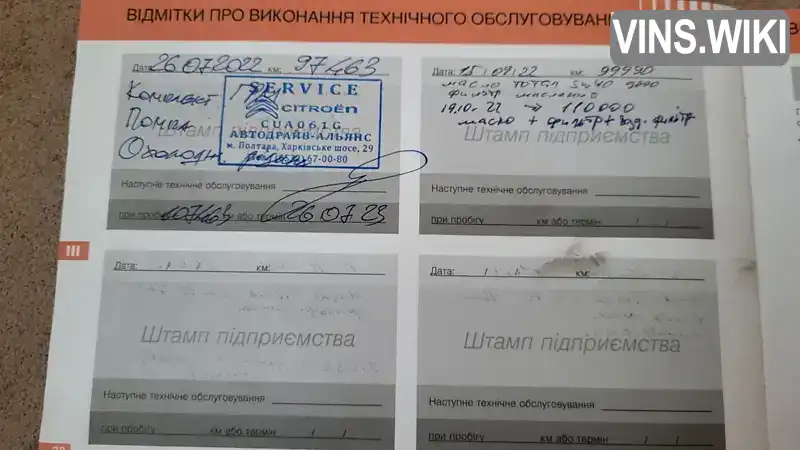 ВІДМІТКИ ПРО ВИКОНАННЯ ТЕХНІЧНОГО ОБСЛУГОВУВАН
VINS.WIKI
Дата: 26 07 2022 км: 97463
Комплект ГРМ
Помпа
Охолодж.
SERVICE
CITROËN
CUA061G
АВТОДРАЙВ-АЛЬЯНС
м. Полтава, Харківське шосе, 29
67-00-80
Штамп підприємства
Наступне технічне обслуговування
при пробігу 107463 км або термін 26 07 23
Дата: 15/09/22 км: 99990
масло тотал 5w40 9000
фильтр масляний
19.10.22 → 110000
масло + фильтр + возд. фильтр
Штамп підприємства
Наступне технічне обслуговування
при пробігу км або термін / /
III
Дата: / / км:
Штамп підприємства
Наступне технічне обслуговування
при пробігу км або термін / /
Дата: / / км:
Штамп підприємства
Наступне технічне обслуговування
при пробігу км або термін / /